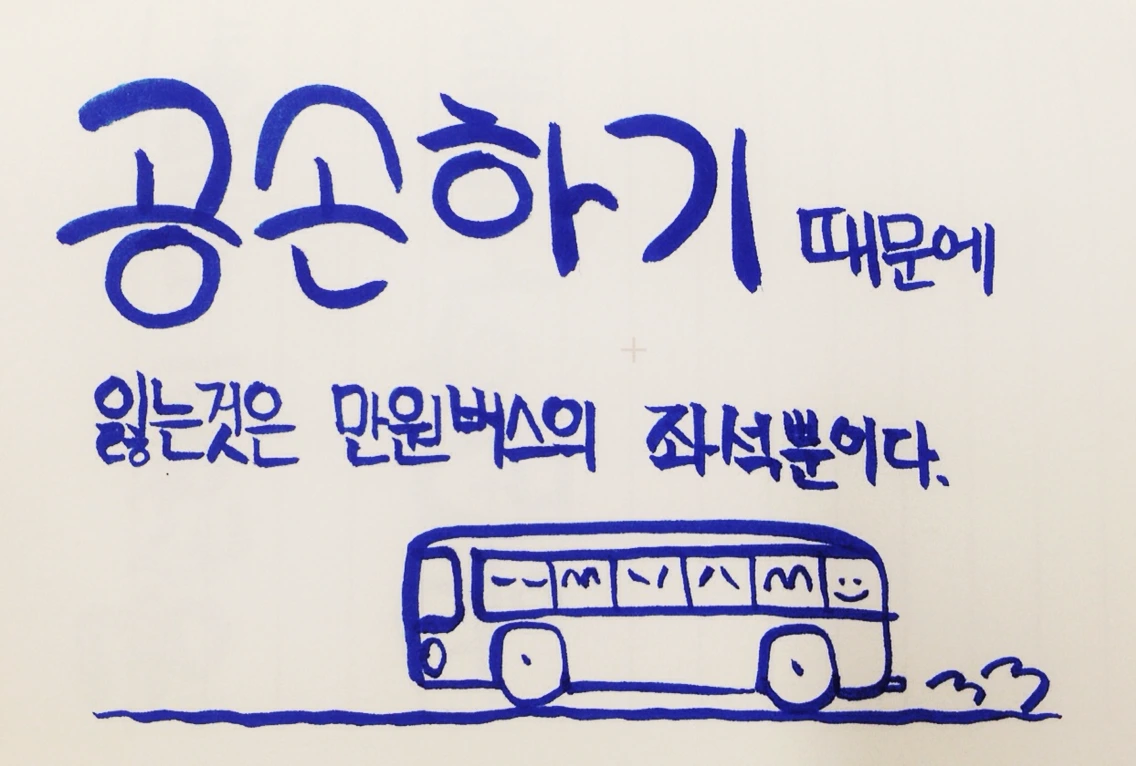 공손하기 때문에
잃는것은 만원버스의 좌석뿐이다.